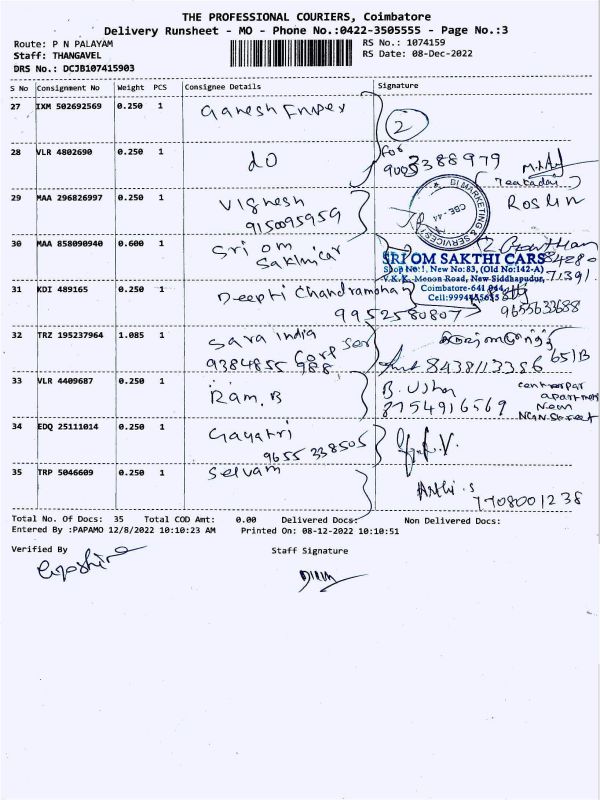 THE PROFESSIONAL COURIERS, Coimbatore
Delivery Runsheet - MO - Phone No.:0422-3505555 - Page No.:3
Route: P N PALAYAM
Staff: THANGAVEL
DRS No.: DCJB107415903
RS No.: 1074159
RS Date: 08-Dec-2022
S No Consignment No Weight PCS Consignee Details Signature
27 IXM 502692569 0.250 1 Ganesh Impex
2
28 VLR 4802690 0.250 1 do
for
3388979
29 MAA 296826997 0.250 1 Vignesh
9150095959
BI MARKETING & SERVICES
CBE-44
Roslin
30 MAA 858090940 0.600 1 Sri om
Sakthi car
SRI OM SAKTHI CARS
Shop No:1, New No:83, (Old No:142-A)
V.K.K. Menon Road, New Siddhapudur,
Coimbatore-641 044
Cell:9994455655
84280
71391
31 KDI 489165 0.250 1 Deepti Chandramohan
9952580807
9655633688
32 TRZ 195237964 1.085 1 Sara India
Corp Ser
9384855 988
8438113386 651B
33 VLR 4409687 0.250 1 Ram.B
B. Usha
8754916569
apartment
New
34 EDQ 25111014 0.250 1 Gayatri
9655 338505
35 TRP 5046609 0.250 1 Selvam
Arthi.S
7708001238
Total No. Of Docs: 35 Total COD Amt: 0.00 Delivered Docs: Non Delivered Docs:
Entered By :PAPAMO 12/8/2022 10:10:23 AM Printed On: 08-12-2022 10:10:51
Verified By
Staff Signature